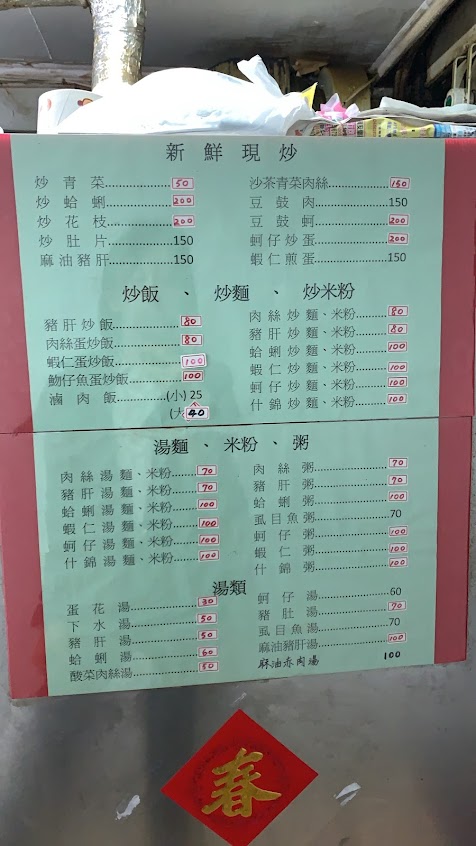 新鮮現炒
炒青菜..................50
炒蛤蜊..................200
炒花枝..................200
炒肚片..................150
麻油豬肝..................150
沙茶青菜肉絲..................150
豆鼓肉..................150
豆鼓蚵..................200
蚵仔炒蛋..................200
蝦仁煎蛋..................150
炒飯、炒麵、炒米粉
豬肝炒飯..................80
肉絲蛋炒飯..................80
蝦仁蛋炒飯..................100
魩仔魚蛋炒飯..................100
滷肉飯..................(小) 25
(大 40
肉絲炒麵、米粉..................80
豬肝炒麵、米粉..................80
蛤蜊炒麵、米粉..................100
蝦仁炒麵、米粉..................100
蚵仔炒麵、米粉..................100
什錦炒麵、米粉..................100
湯麵、米粉、粥
肉絲湯麵、米粉..................70
豬肝湯麵、米粉..................70
蛤蜊湯麵、米粉..................100
蝦仁湯麵、米粉..................100
蚵仔湯麵、米粉..................100
什錦湯麵、米粉..................100
肉絲粥..................70
豬肝粥..................70
蛤蜊粥..................100
虱目魚粥..................70
蚵仔粥..................100
蝦仁粥..................100
什錦粥..................100
湯類
蛋花湯..................30
下水湯..................50
豬肝湯..................50
蛤蜊湯..................60
酸菜肉絲湯..................50
蚵仔湯..................60
豬肚湯..................70
虱目魚湯..................70
麻油豬肝湯..................100
麻油赤肉湯 100
春